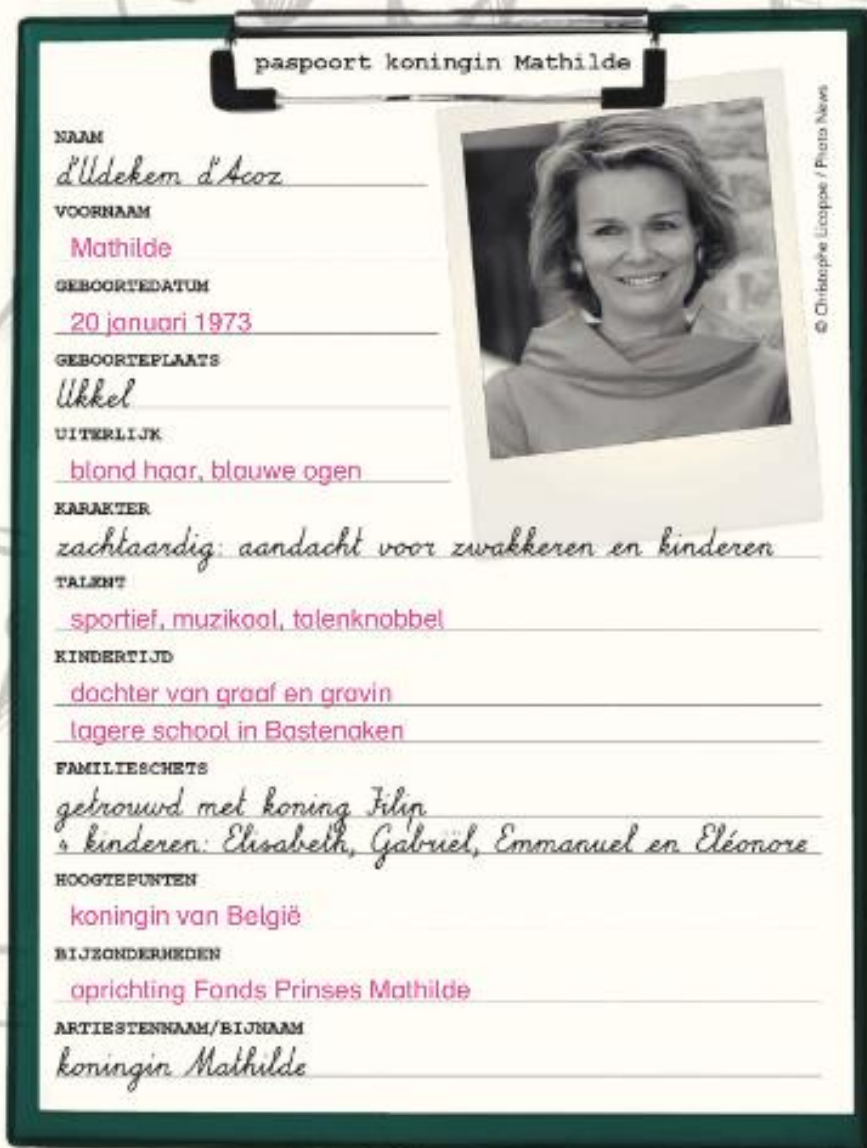 paspoort koningin Mathilde
© Christophe Licoppe / Photo News
NAAM
d'Udekem d'Acoz
VOORNAAM
Mathilde
GEBOORTEDATUM
20 januari 1973
GEBOORTEPLAATS
Ukkel
UITERLIJK
blond haar, blauwe ogen
KARAKTER
zachtaardig: aandacht voor zwakkeren en kinderen
TALENT
sportief, muzikaal, talenknobbel
KINDERTIJD
dochter van graaf en gravin
lagere school in Bastenaken
FAMILIESCHETS
getrouwd met koning Filip
4 kinderen: Elisabeth, Gabriël, Emmanuel en Eléonore
HOOGTEPUNTEN
koningin van België
BIJZONDERHEDEN
oprichting Fonds Prinses Mathilde
ARTIESTENNAAM/BIJNAAM
koningin Mathilde